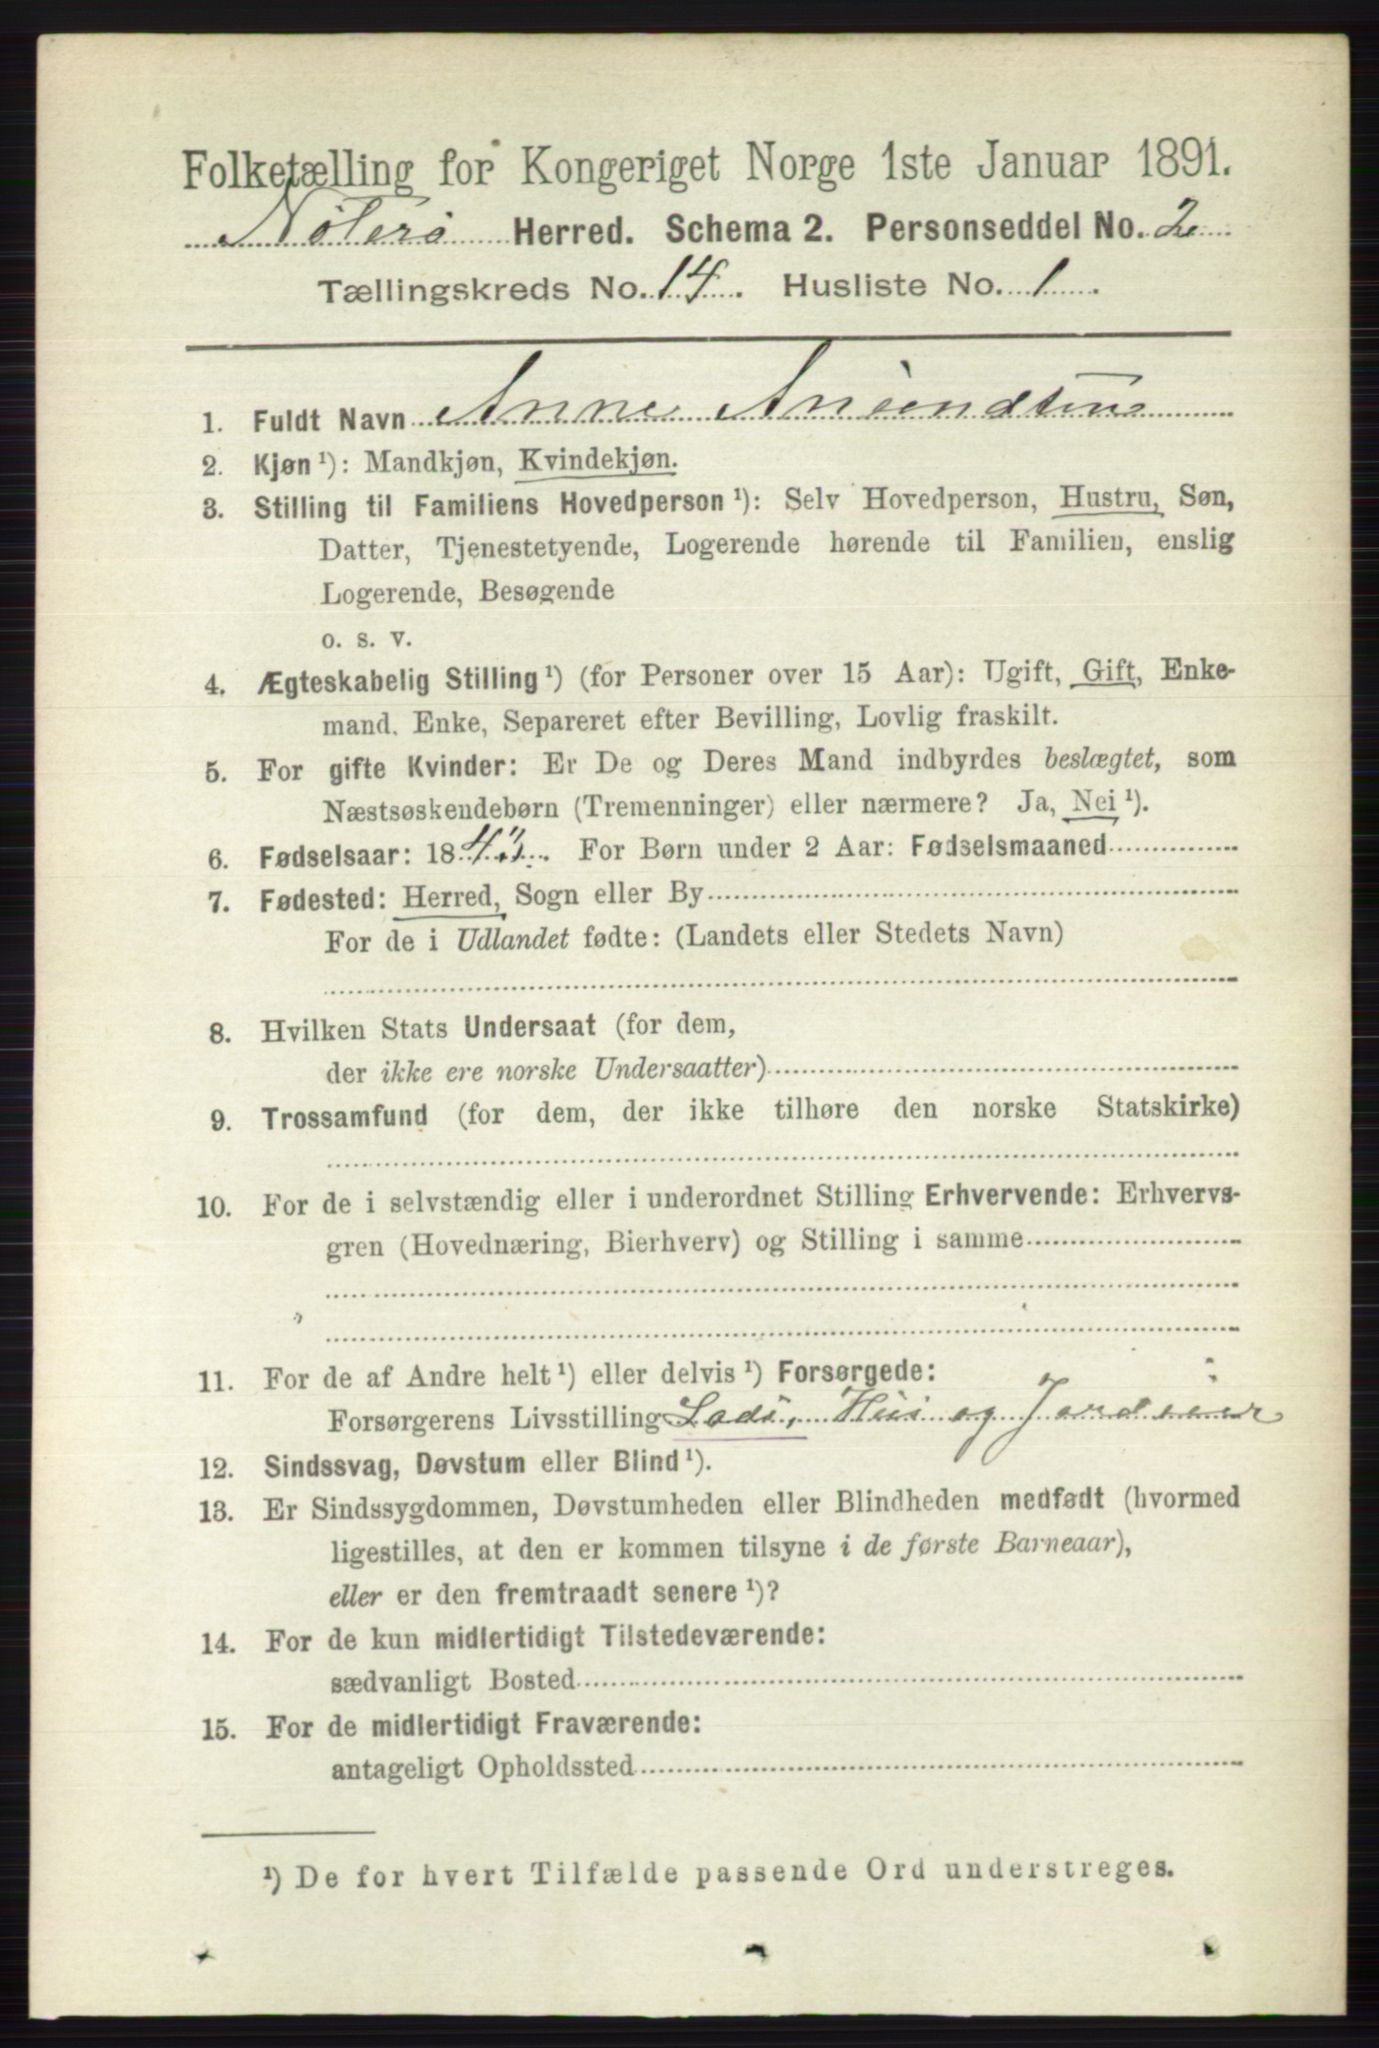 Folketælling for Kongeriget Norge 1ste Januar 1891.
Nøterø Herred. Schema 2. Personseddel No. 2
Tællingskreds No. 14. Husliste No. 1.
1. Fuldt Navn Anne Amundsen
2. Kjøn ¹): Mandkjøn, Kvindekjøn.
3. Stilling til Familiens Hovedperson ¹): Selv Hovedperson, Hustru, Søn,
Datter, Tjenestetyende, Logerende hørende til Familien, enslig
Logerende, Besøgende
o. s. v.
4. Ægteskabelig Stilling ¹) (for Personer over 15 Aar): Ugift, Gift, Enke-
mand. Enke, Separeret efter Bevilling, Lovlig fraskilt.
5. For gifte Kvinder: Er De og Deres Mand indbyrdes beslægtet, som
Næstsøskendebørn (Tremenninger) eller nærmere? Ja, Nei ¹).
6. Fødselsaar: 1843. For Børn under 2 Aar: Fødselsmaaned
7. Fødested: Herred, Sogn eller By
For de i Udlandet fødte: (Landets eller Stedets Navn)
8. Hvilken Stats Undersaat (for dem,
der ikke ere norske Undersaatter)
9. Trossamfund (for dem, der ikke tilhøre den norske Statskirke)
10. For de i selvstændig eller i underordnet Stilling Erhvervende: Erhvervs-
gren (Hovednæring, Bierhverv) og Stilling i samme
11. For de af Andre helt ¹) eller delvis ¹) Forsørgede:
Forsørgerens Livsstilling Lods, Hus og Jordeier
12. Sindssvag, Døvstum eller Blind ¹).
13. Er Sindssygdommen, Døvstumheden eller Blindheden medfødt (hvormed
ligestilles, at den er kommen tilsyne i de første Barneaar),
eller er den fremtraadt senere ¹)?
14. For de kun midlertidigt Tilstedeværende:
sædvanligt Bosted
15. For de midlertidigt Fraværende:
antageligt Opholdssted
¹) De for hvert Tilfælde passende Ord understreges.